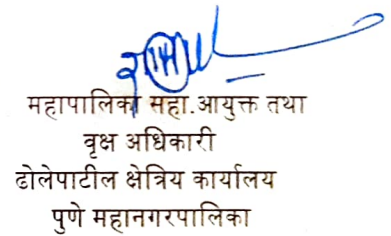 महापालिका सहा.आयुक्त तथा
वृक्ष अधिकारी
ढोलेपाटील क्षेत्रिय कार्यालय
पुणे महानगरपालिका